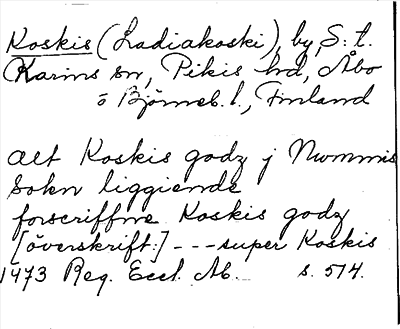 Koskis (Ladiakoski), by, S:t.
Karins sn, Pikis hd, Åbo
o Björneb. l., Finland
alt Koskis godz j Nwmmis
Sokn liggiende
forscriffne Koskis godz
[överskrift:] --- super Koskis
1473 Reg. Eccl. Ab. s. 514.